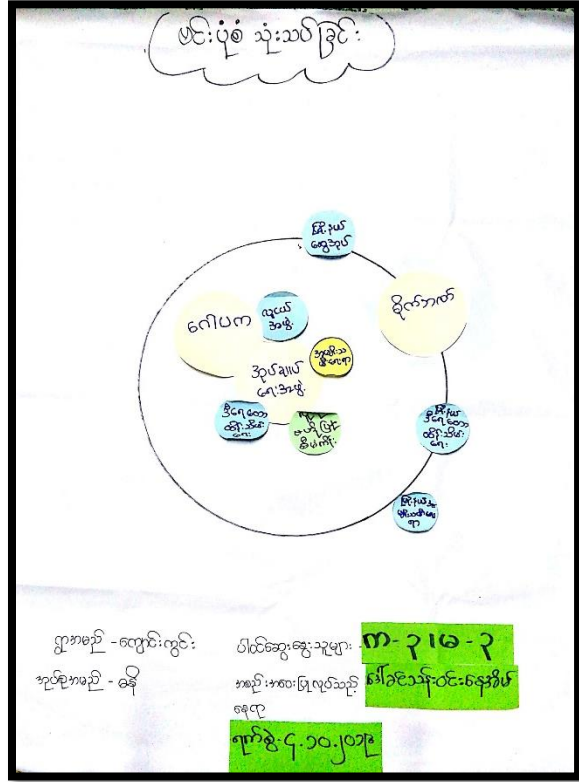 ဗင်းပုံစံ သုံးသပ်ခြင်း
မြို့နယ်
ထွေအုပ်
မိုက်ဘဏ်
ဂေါပက
လူငယ်
အဖွဲ့
အုပ်ချုပ်
ရေးအဖွဲ့
ဒီရေတော
ထိန်းသိမ်း
ရေး
မြို့နယ်
ဒီရေတော
ထိန်းသိမ်း
ရေး
ရွာအမည် - ကျောင်းကွင်း
အုပ်စုအမည် - ဓနိ
ပါဝင်ဆွေးနွေးသူများ - က - ၃ ၊ မ - ၃
အစည်းအဝေးပြုလုပ်သည့် ဒေါ်ခင်သန်းဝင်းနေအိမ်
နေရာ
ရက်စွဲ - ၄.၁၀.၂၀၁၉